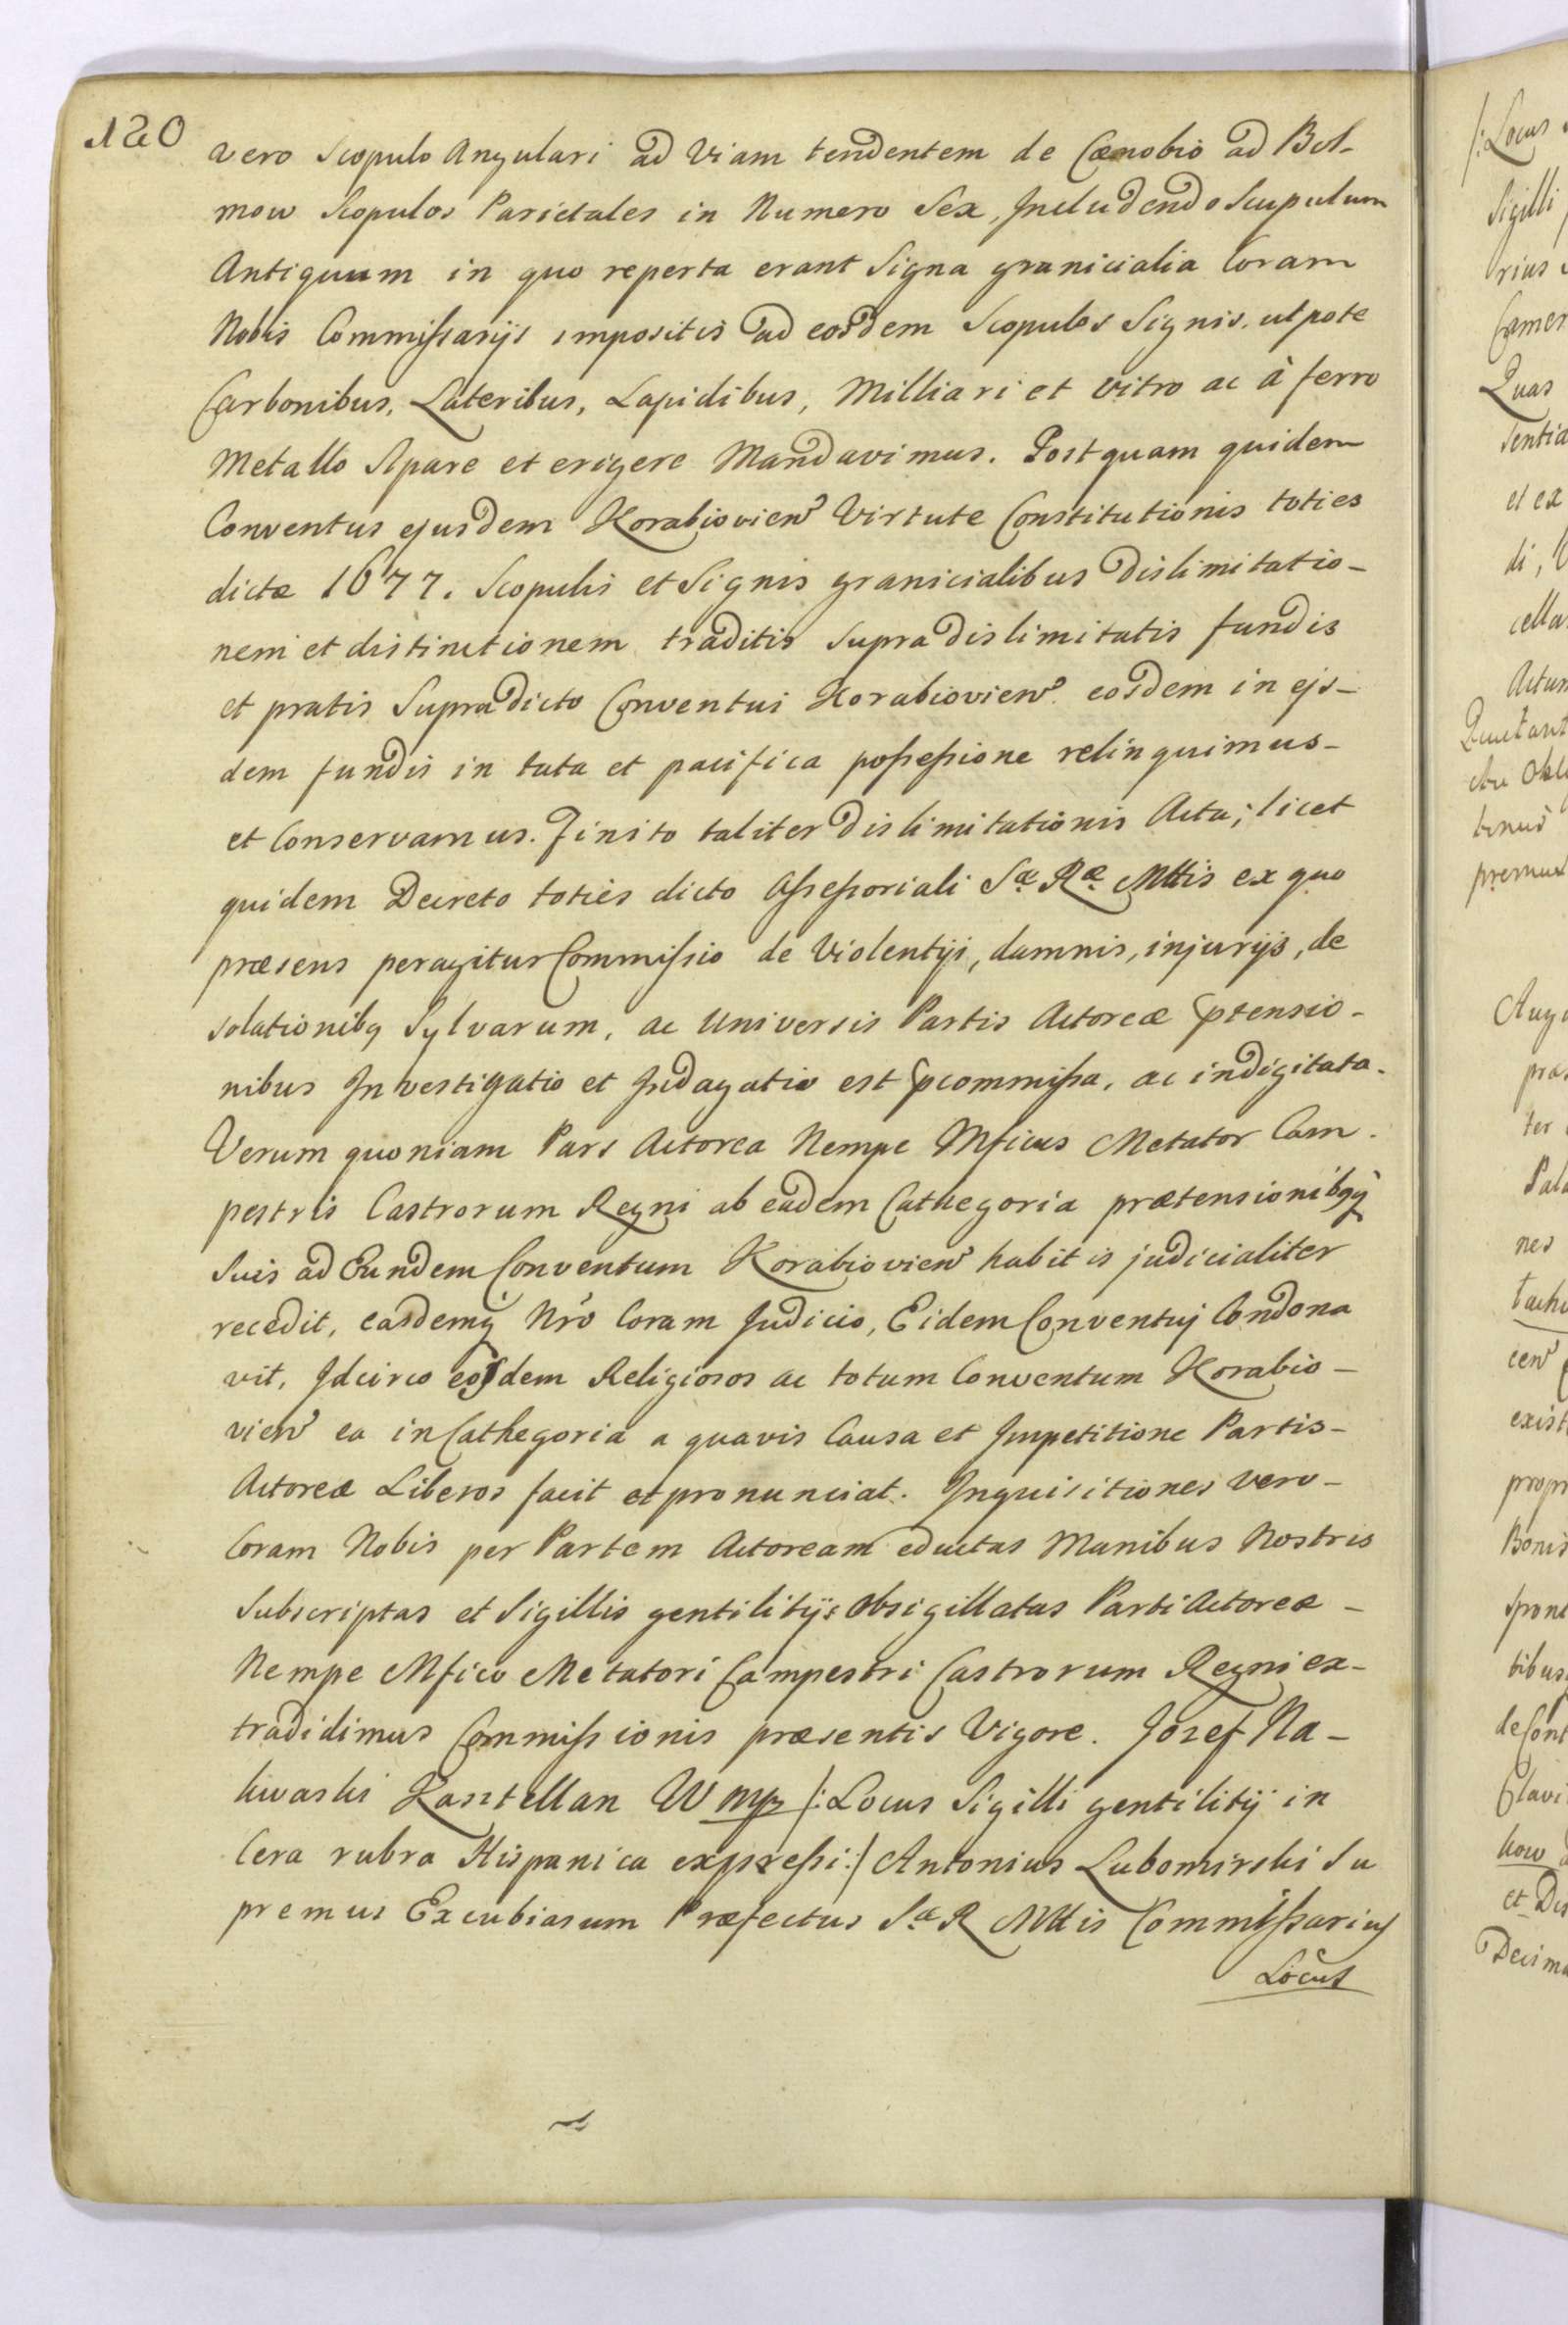 120
vero Scopulo Angulari ad Viam tendentem de Cænobio ad Bol-
mow Scopulos Parietales in Numero Sex, Includendo Scupulum
Antiquum in quo reperta erant Signa granicialia Coram
Nobis Commissarijs impositis ad eosdem Scopulos Signis. utpote
Carbonibus, Lateribus, Lapidibus, Milliari et vitro ac à ferro
Metallo Sipare et erigere Mandavimus. Postquam quidem
Conventus ejusdem Korabiovien Virtute Constitutionis toties
dictæ 1677. Scopulis et Signis granicialibus Dislimitatio-
nem et distinctionem traditis supra dislimitatis fundis
et pratis Supradicto Conventui Korabiovien eosdem in ejs-
dem fundis in tuta et pacifica possessione relinquimus-
et Conservamus. Finito taliter dislimitationis Actu; licet
quidem Decreto toties dicto Assessoriali Sæ Ræ Mttis ex quo
præsens peragitur Commissio de Violentijs, damnis, injurijs, de
solationibq Sylvarum, ac Universis Partis Actoreæ ptensio-
nibus Investigatio et Indagatio est pcommissa, ac indigitata.
Verum quoniam Pars Actorea Nempe Mficus Metator Cam-
pestris Castrorum Regni ab eadem Cathegoria prætensionibqq
Suis ad Eundem Conventum Korabiovien habitis judicialiter
recedit, easdemq Nro Coram Judicio, Eidem Conventuj Condona
vit, Idcirco eosdem Religiosos ac totum Conventum Korabio-
vien ea in Cathegoria a quavis Causa et Impetitione Partis-
Actoreæ Liberos facit et pronunciat. Inquisitiones vero-
Coram Nobis per Partem Actoream eductas Manibus Nostris
Subscriptas et Sigillis gentilitijs Obsigillatas Parti Actoreæ -
Nempe Mfico Metatori Campestri Castrorum Regni ex-
tradidimus Commissionis præsentis Vigore. Jozef Na-
kwaski Kasztellan W mp /: Locus Sigilli gentilitij in
Cera rubra Hispanica expressi :/ Antonius Lubomirski Su
premus Excubiarum Præfectus Sæ R Mttis Commissarius
Locus
/: Locus
Sigilli
rius
Camer
Quas
sentia
et ex
di,
cella
Actum
premux
pra
ter
Pala
nes
exist
propr
Bonis
spont
tibus
de Cont
Clavi
kow
et Dis
Decima